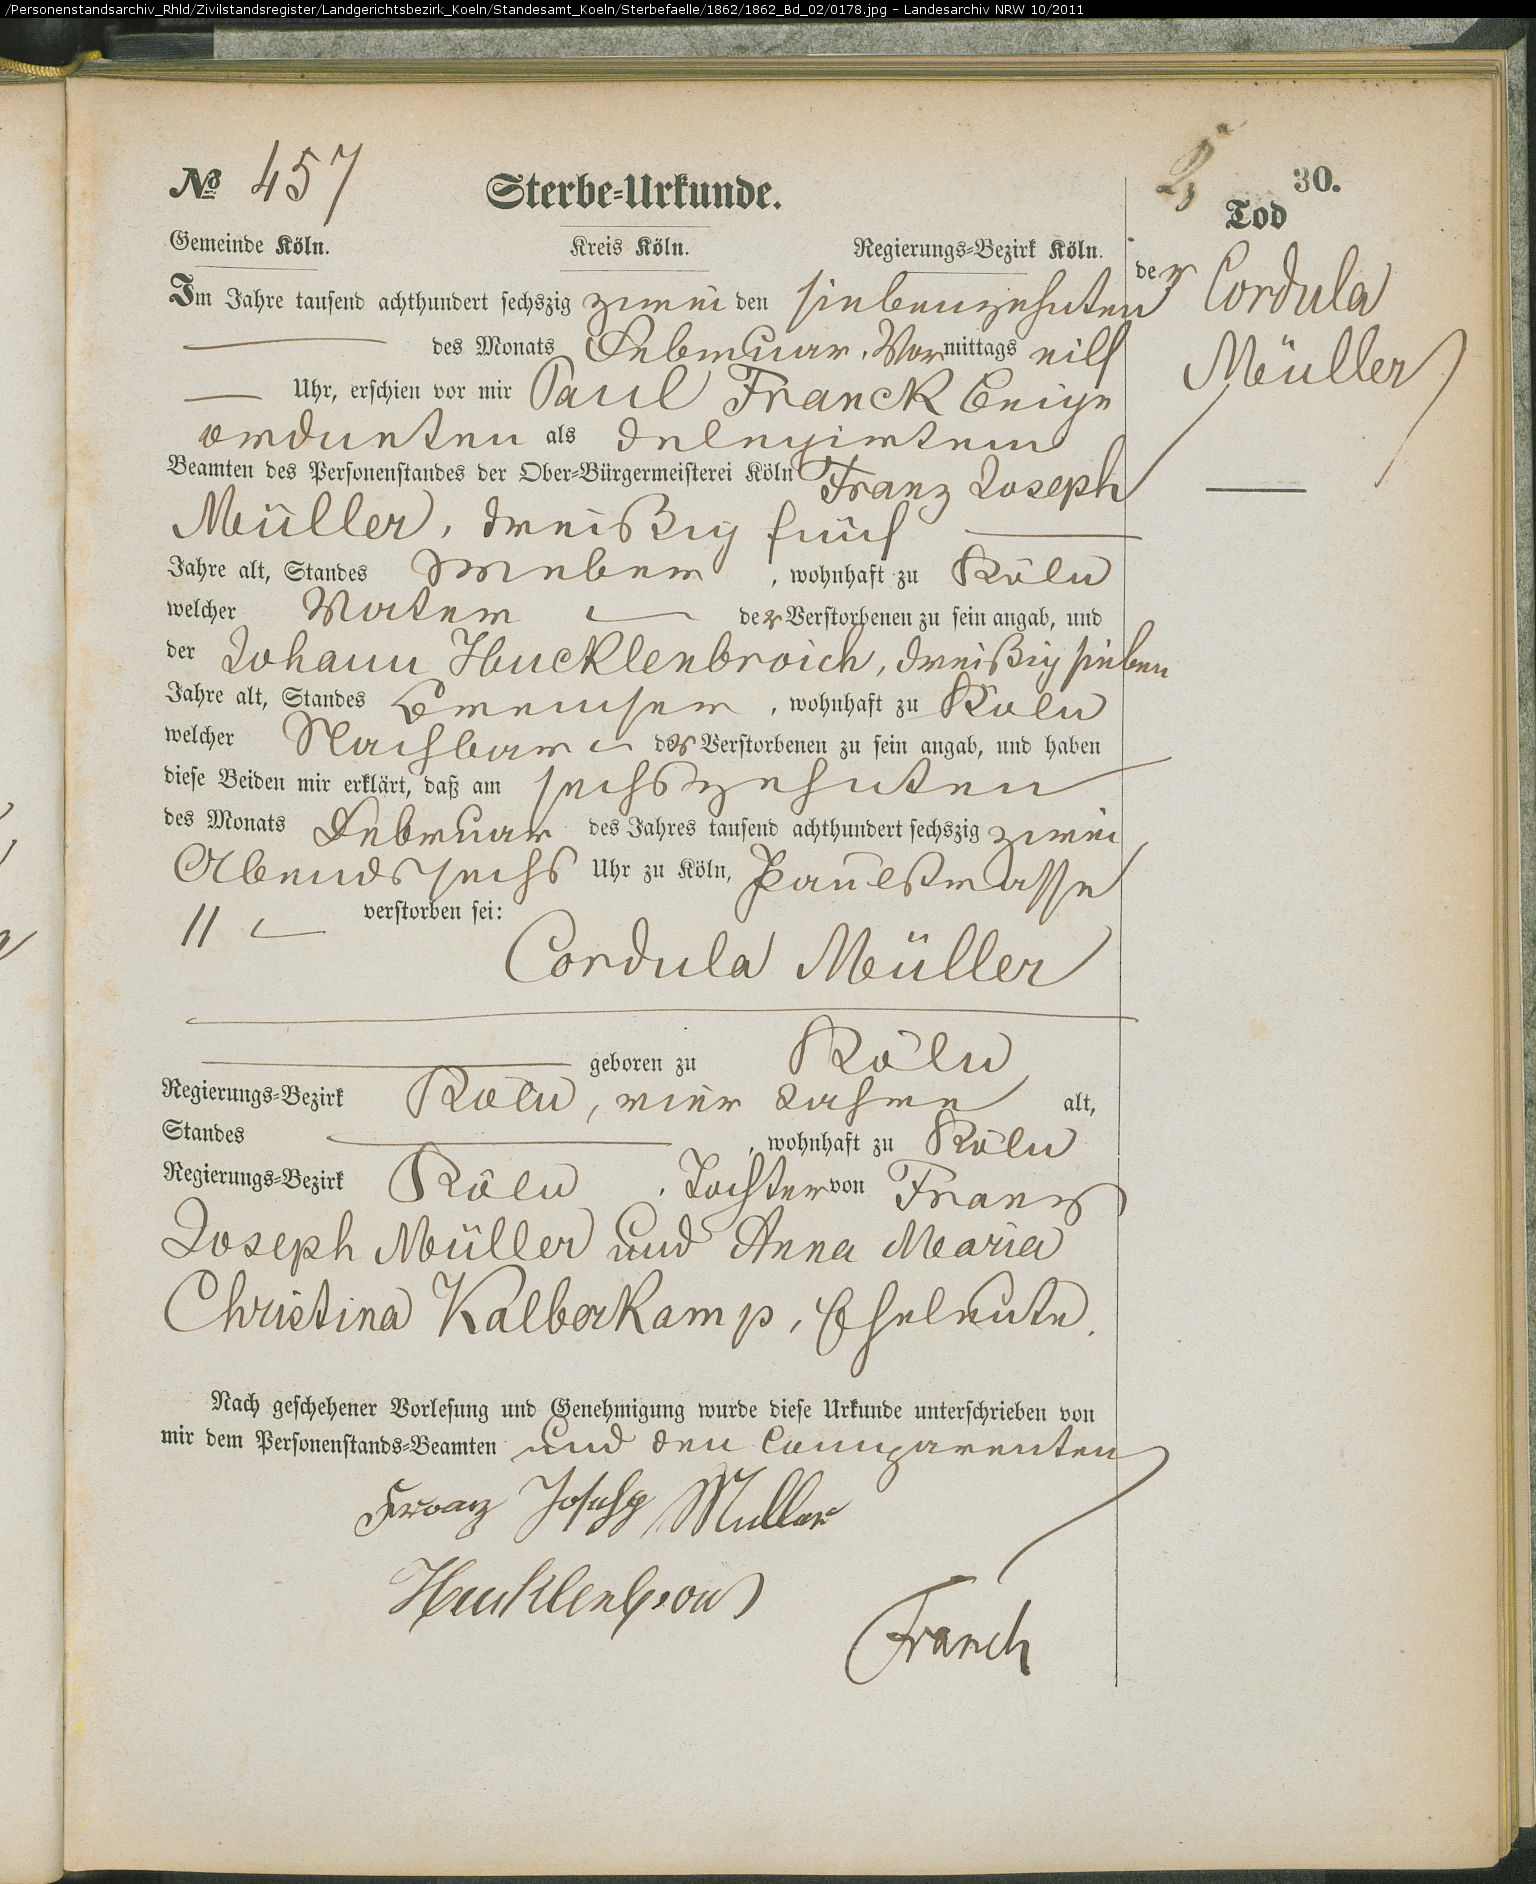 /Personenstandsarchiv_Rhld/Zivilstandsregister/Landgerichtsbezirk_Koeln/Standesamt_Koeln/Sterbefaelle/1862/1862_Bd_02/0178.jpg - Landesarchiv NRW 10/2011
30.
№ 457 Sterbe-Urkunde.
Tod
der Cordula
Müller
Gemeinde Köln. Kreis Köln. Regierungs-Bezirk Köln.
Im Jahre tausend achthundert sechszig zwei den siebenzehnten
des Monats Februar, Vormittags eilf
Uhr, erschien vor mir Paul Franck Beige
ordneten als delegirtem
Beamten des Personenstandes der Ober-Bürgermeisterei Köln Franz Joseph
Müller, dreißig fünf
Jahre alt, Standes Weber, wohnhaft zu Köln
welcher Vater der Verstorbenen zu sein angab, und
der Johann Hucklenbroich, dreißig sieben
Jahre alt, Standes Bremser, wohnhaft zu Köln
welcher Nachbar der Verstorbenen zu sein angab, und haben
diese Beiden mir erklärt, daß am sechszehnten
des Monats Februar des Jahres tausend achthundert sechszig zwei
Abends sechs Uhr zu Köln, Paulstrasse
11 verstorben sei:
Cordula Müller
geboren zu Köln
Regierungs-Bezirk Köln, vier Jahre alt,
Standes , wohnhaft zu Köln
Regierungs-Bezirk Köln, Tochter von Franz
Joseph Müller und Anna Maria
Christina Kalberkamp, Eheleute.
Nach geschehener Vorlesung und Genehmigung wurde diese Urkunde unterschrieben von
mir dem Personenstands-Beamten und den Comparenten
Franz Joseph Muller
Hucklenbroich
Franck